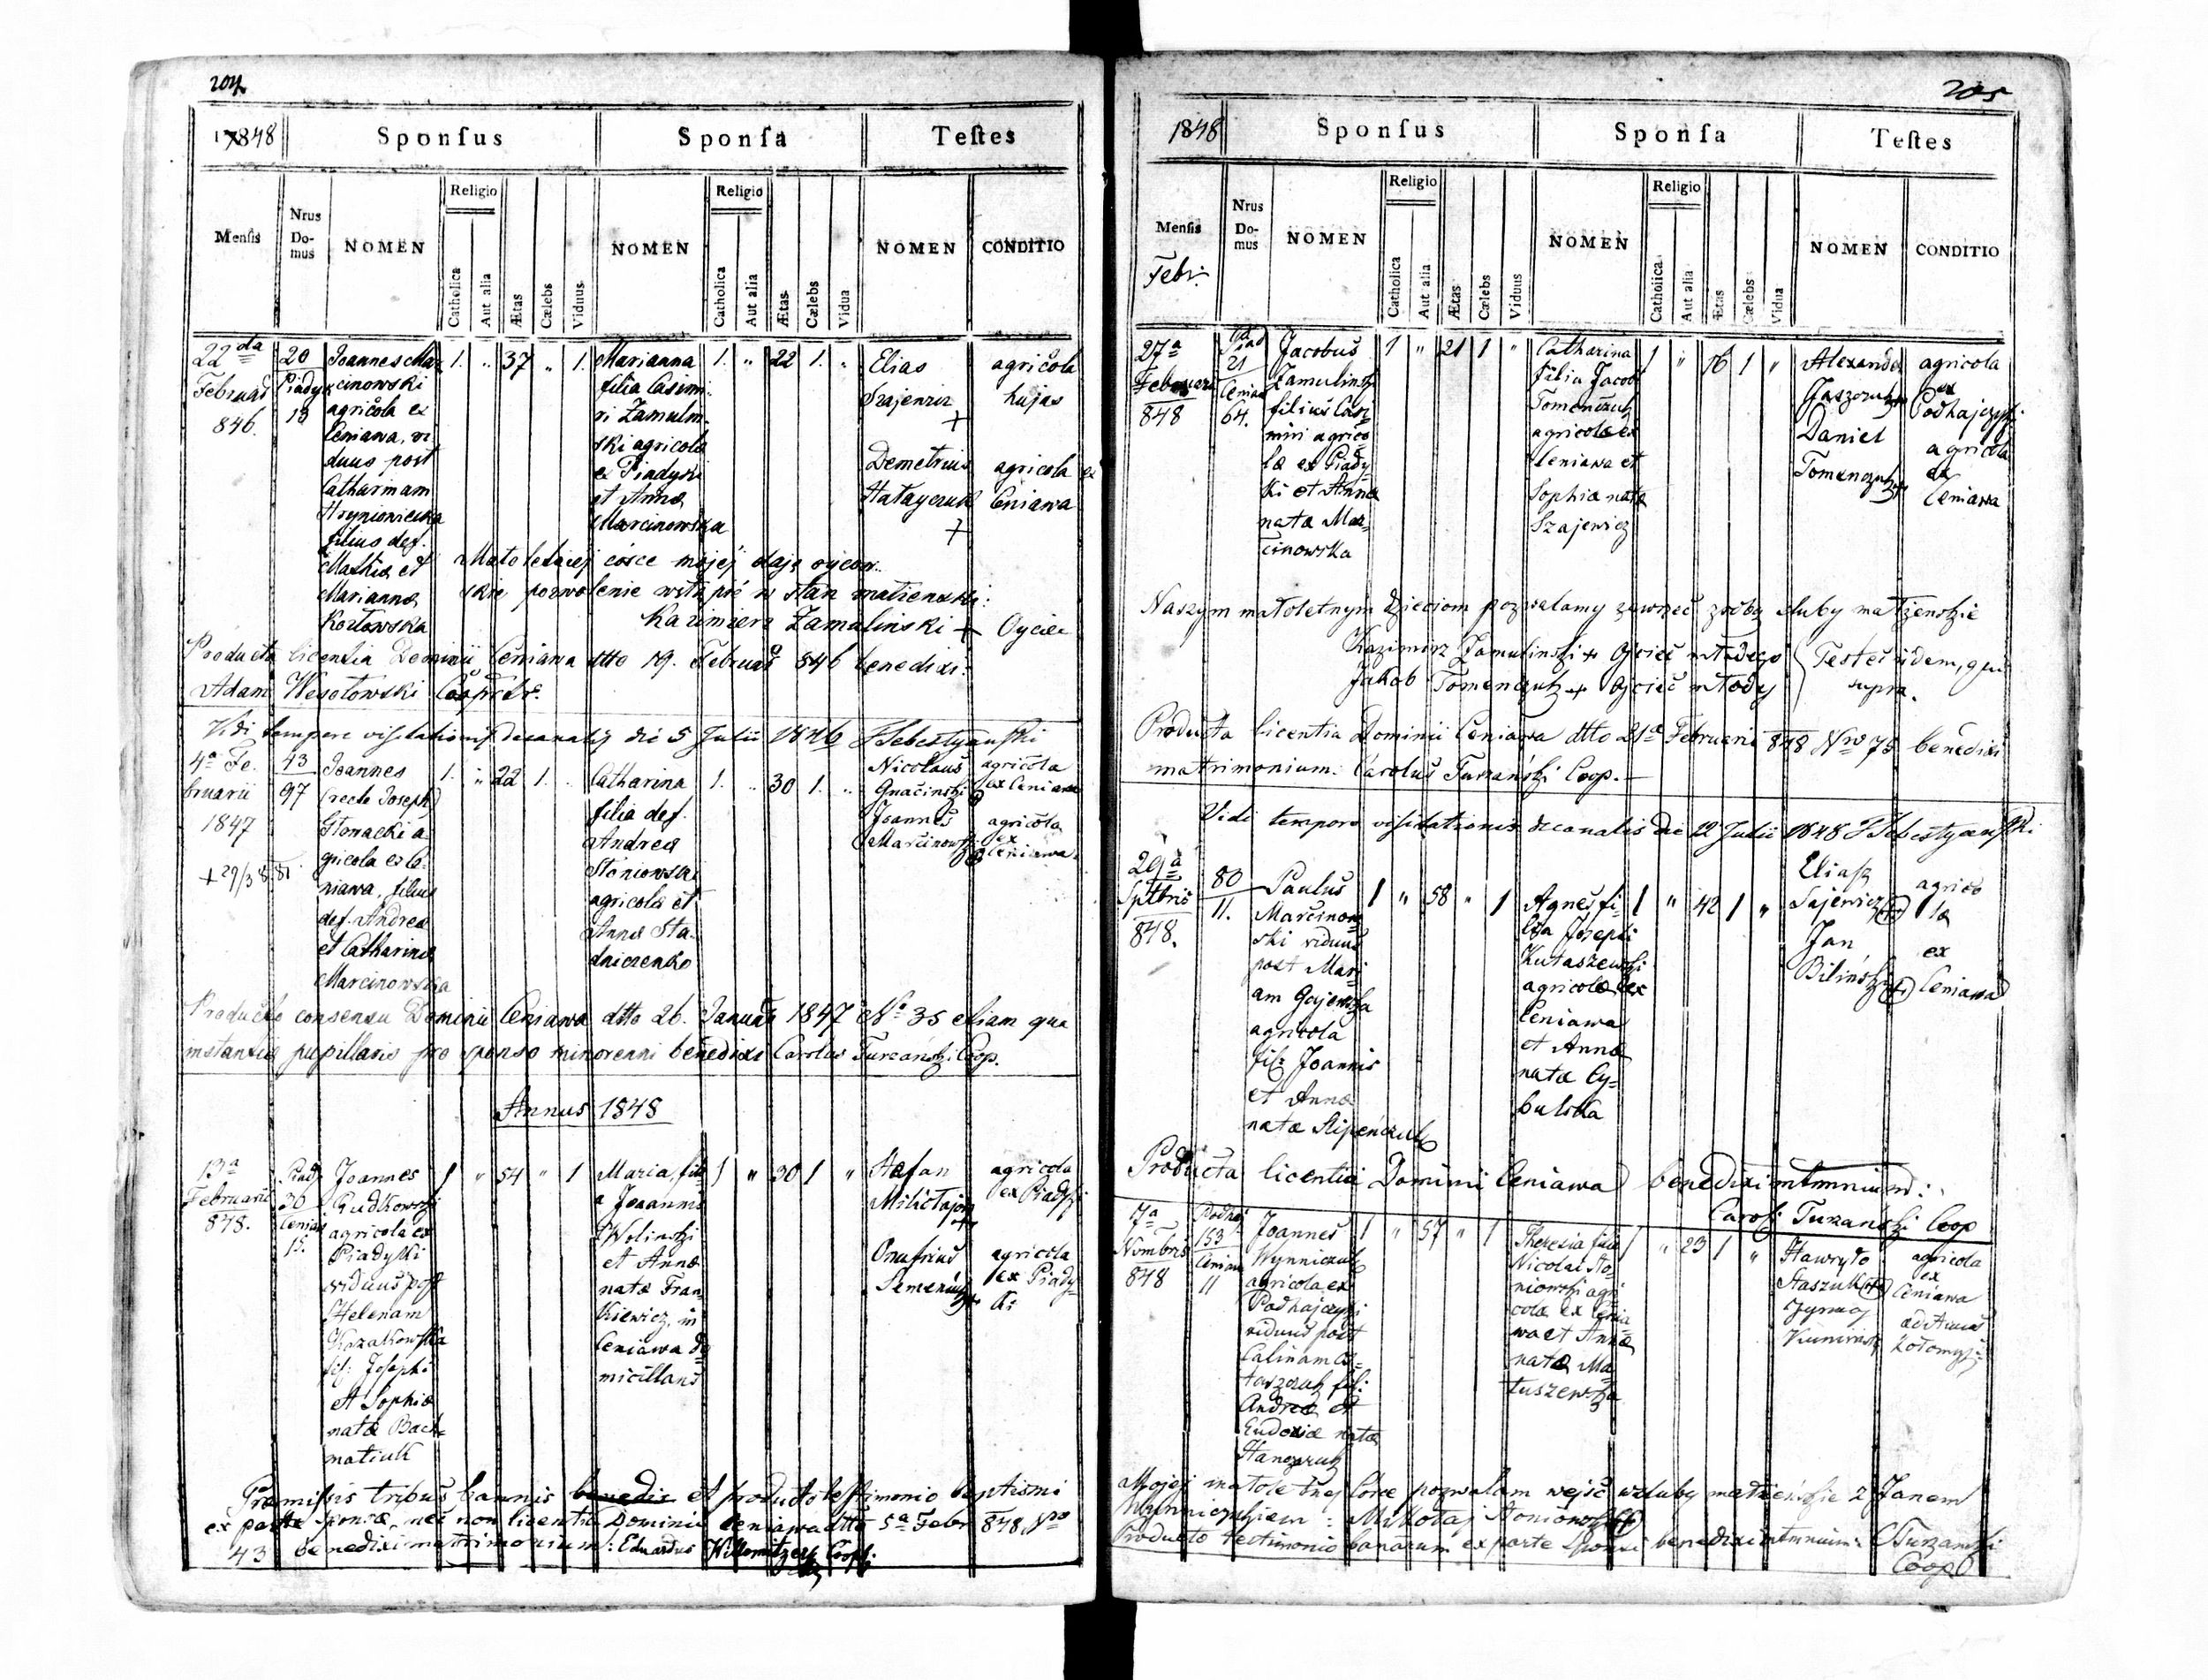 204
17848
Sponſus
Sponſa
Teſtes
Menſis
Nrus
Do-
mus
NOMEN
Religio
Catholica
Aut alia
Ætas
Cælebs
Viduus
NOMEN
Religio
Catholica
Aut alia
Ætas
Cælebs
Vidua
NOMEN
CONDITIO
22da
Februar
846.
20
Piadyk
13
Joannes Mar
cinowski
agricola ex
Ceniawa, vi
duus post
Catharinam
filius def.
Mathiæ et
Mariannæ
Kozłowska
1. " 37 " 1.
Marianna
filia Casimi-
ri Zamulin-
ski agricolæ
ex Piadyki
et Annæ
Marcinowska
1. " 22 1. "
Elias
Szajewicz
+
Demetrius
+
agricola
hujas
agricola ex
Ceniawa
Małoletniej córce mojej daję ojcow-
skie pozwolenie wstąpić w stan małżeński:
Kazimierz Zamulinski + Oyciec
Producta licentia Dominii Ceniawa dtto 19. Februar 846 benedixi:
Adam Wesołowski Cooprtr.
Vidi tempore visitationis decanalis die 5 Julii 1846 JSebestyański
4a Fe-
bruarii
1847
+ 29/3 881
43
97
Joannes
(recte Joseph)
Głowacki a-
gricola ex Ce-
niawa, filius
def. Andreæ
et Catharinæ
Marcinowska
1. " 22 1. "
Catharina
filia def.
Andreæ
Stoniowski
agricolæ et
Annæ Sta-
dniczenko
1. " 30 1. "
Nicolaus
Gnaciński
Joannes
Marcinowski
agricola
ex Ceniawa
agricola
ex
Ceniawa
Producto consensu Dominii Ceniawa dtto 26. Januar 1847 No 35 etiam qua
instantiæ pupillaris pro sponso minorenni benedixi Carolus Turzański Coop.
Annus 1848
13a
Februarii
848.
Piad
30
Ceniaw
15.
Joannes
Gudkowski
agricola ex
Piadyki
viduus post
Helenam
Kozakowska
fil: Josephi
et Sophiæ
natæ Bach-
matiuk
1 " 54 " 1
Maria fili-
a Joannis
Wolinski
et Annæ
natæ Fran-
kiewicz, in
Ceniawa do
micilians
1 " 30 1 "
Stefan
+
Onufrius
Semeniuk
+
agricola
ex Piadyki
agricola
ex Piady-
ki
Præmissis tribus bannis benedix et producto testimonio baptismi
ex parte sponsæ, nec non licentia Dominii Ceniawa dtto 5a Febr 848 Nro
43 benedixi matrimonium: Eduardus Coop.
205
1848
Sponſus
Sponſa
Teſtes
Menſis
Febr:
Nrus
Do-
mus
NOMEN
Religio
Catholica
Aut alia
Ætas
Cælebs
Viduus
NOMEN
Religio
Catholica
Aut alia
Ætas
Cælebs
Vidua
NOMEN
CONDITIO
27a
Februari
848
Piad
21
Ceniaw
64.
Jacobus
Zamulinski
filius Casi-
miri agrico-
læ ex Piady-
ki et Annæ
natæ Mar-
cinowska
1 " 21 1 "
Catharina
filia Jacobi
Tomenczuk
agricolæ ex
Ceniawa et
Sophiæ natæ
Szajewicz
1 " 16 1 "
Alexander
Jaszczuk +
Daniel
Tomenczuk +
agricola
ex
Podhajczyki
agricola
ex
Ceniawa
Naszym małoletnym dzieciom pozwalamy zawrzeć z sobą śluby małżenskie
Kazimirz Zamulinski + Ojciec młodego
Jakob Tomenczuk + Ojciec młody
Testes iidem, qui
supra.
Producta licentia Dominii Ceniawa dtto 21a Februarii 848 Nro 75 benedixi
matrimonium: Carolus Turzański Coop.
Vidi tempore visitationis decanalis die 12 Julii 1848 JSebestyański
29a
Septbris
848.
80
11.
Paulus
Marcinow-
ski viduus
post Mari-
am Gajewska
agricola
fil: Joannis
et Annæ
natæ Stipenczuk
1 " 58 " 1
Agnes fi-
lia Josephi
Kutaszewski
agricolæ ex
Ceniawa
et Annæ
natæ Cy-
bulska
1 " 42 1 "
Eliasz
Sajewicz (+)
Jan
Biliński (+)
agrico
læ
ex
Ceniawa
Producta licentia Dominii Ceniawa benedixi mtmnium:
Carol: Turzański Coop
7a
Nvmbris
848
Podhaj
153
Ceniaw
11
Joannes
Wynniczuk
agricola ex
Podhajczyki
viduus post
fil:
Andreæ et
Eudoxiæ natæ
1 " 57 " 1
Theresia filia
Nicolai Sto-
niowski agri-
colæ ex Cenia-
wa et Annæ
natæ Ma-
tuszewska
1 " 23 1 "
Hawryło
Staszuk (+)
agricola
ex
Ceniawa
ædituus
Kołomyj
Mojej małoletnej córce pozwalam wejść w śluby małżeńskie z Janem
Wynniczukiem: Mikołaj Stoniowski (+)
Producto testimonio bannorum ex parte Sponsi benedixi mtmnium: CTurzański
Coop